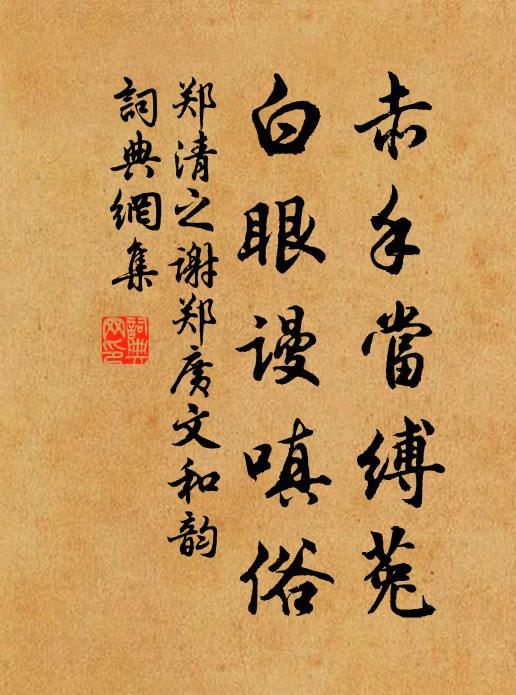 赤手當縛菟
白眼謾嗔俗
郑清之谢郑广文和韵
詞典網集
詞典網印